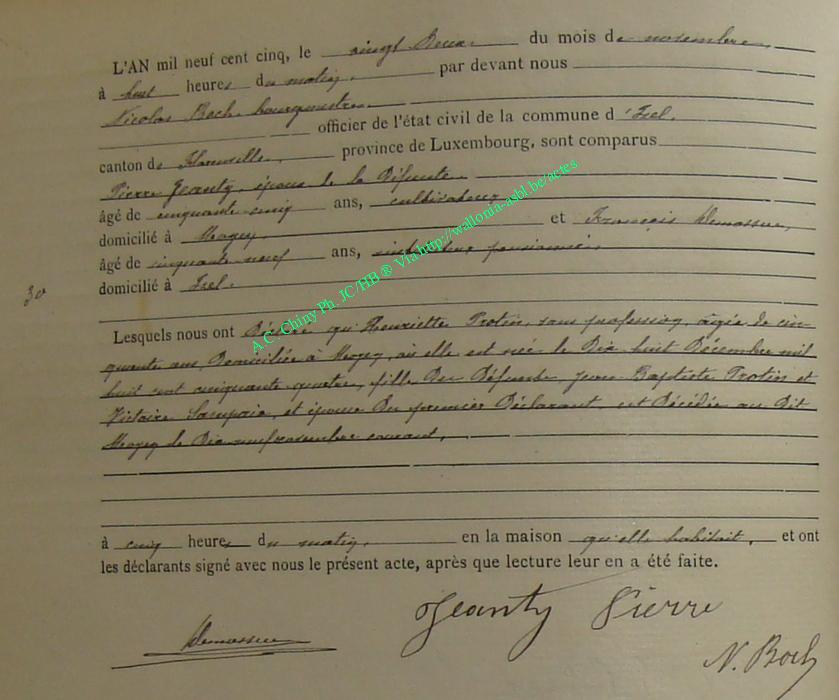 L'AN mil neuf cent cinq, le vingt Deux du mois de novembre,
à huit heures du matin, par devant nous
Nicolas Boch, bourgmestre
officier de l'état civil de la commune d'Izel,
canton de Florenville, province de Luxembourg, sont comparus
Pierre Jeanty, époux de la Défunte
âgé de cinquante cinq ans, cultivateur
domicilié à Moyen, et François Demasseur,
âgé de cinquante neuf ans, pensionné,
domicilié à Izel.
30
Lesquels nous ont Déclaré qu'Henriette Trotin, sans profession, âgée de cin-
quante ans, Domiciliée à Moyen, où elle est née le Dix huit Décembre mil
huit cent cinquante quatre, fille Des Défunts Jean Baptiste Trotin et
Victoire et épouse Du premier Déclarant, est Décédée au Dit
Moyen le Dix neuf novembre courant,
à cinq heures du matin, en la maison qu'elle habitait, et ont
les déclarants signé avec nous le présent acte, après que lecture leur en a été faite.
Jeanty Pierre
N. Boch
A C Chiny Ph. JC/HB ® Via http://wallonia-asbl.be/actes